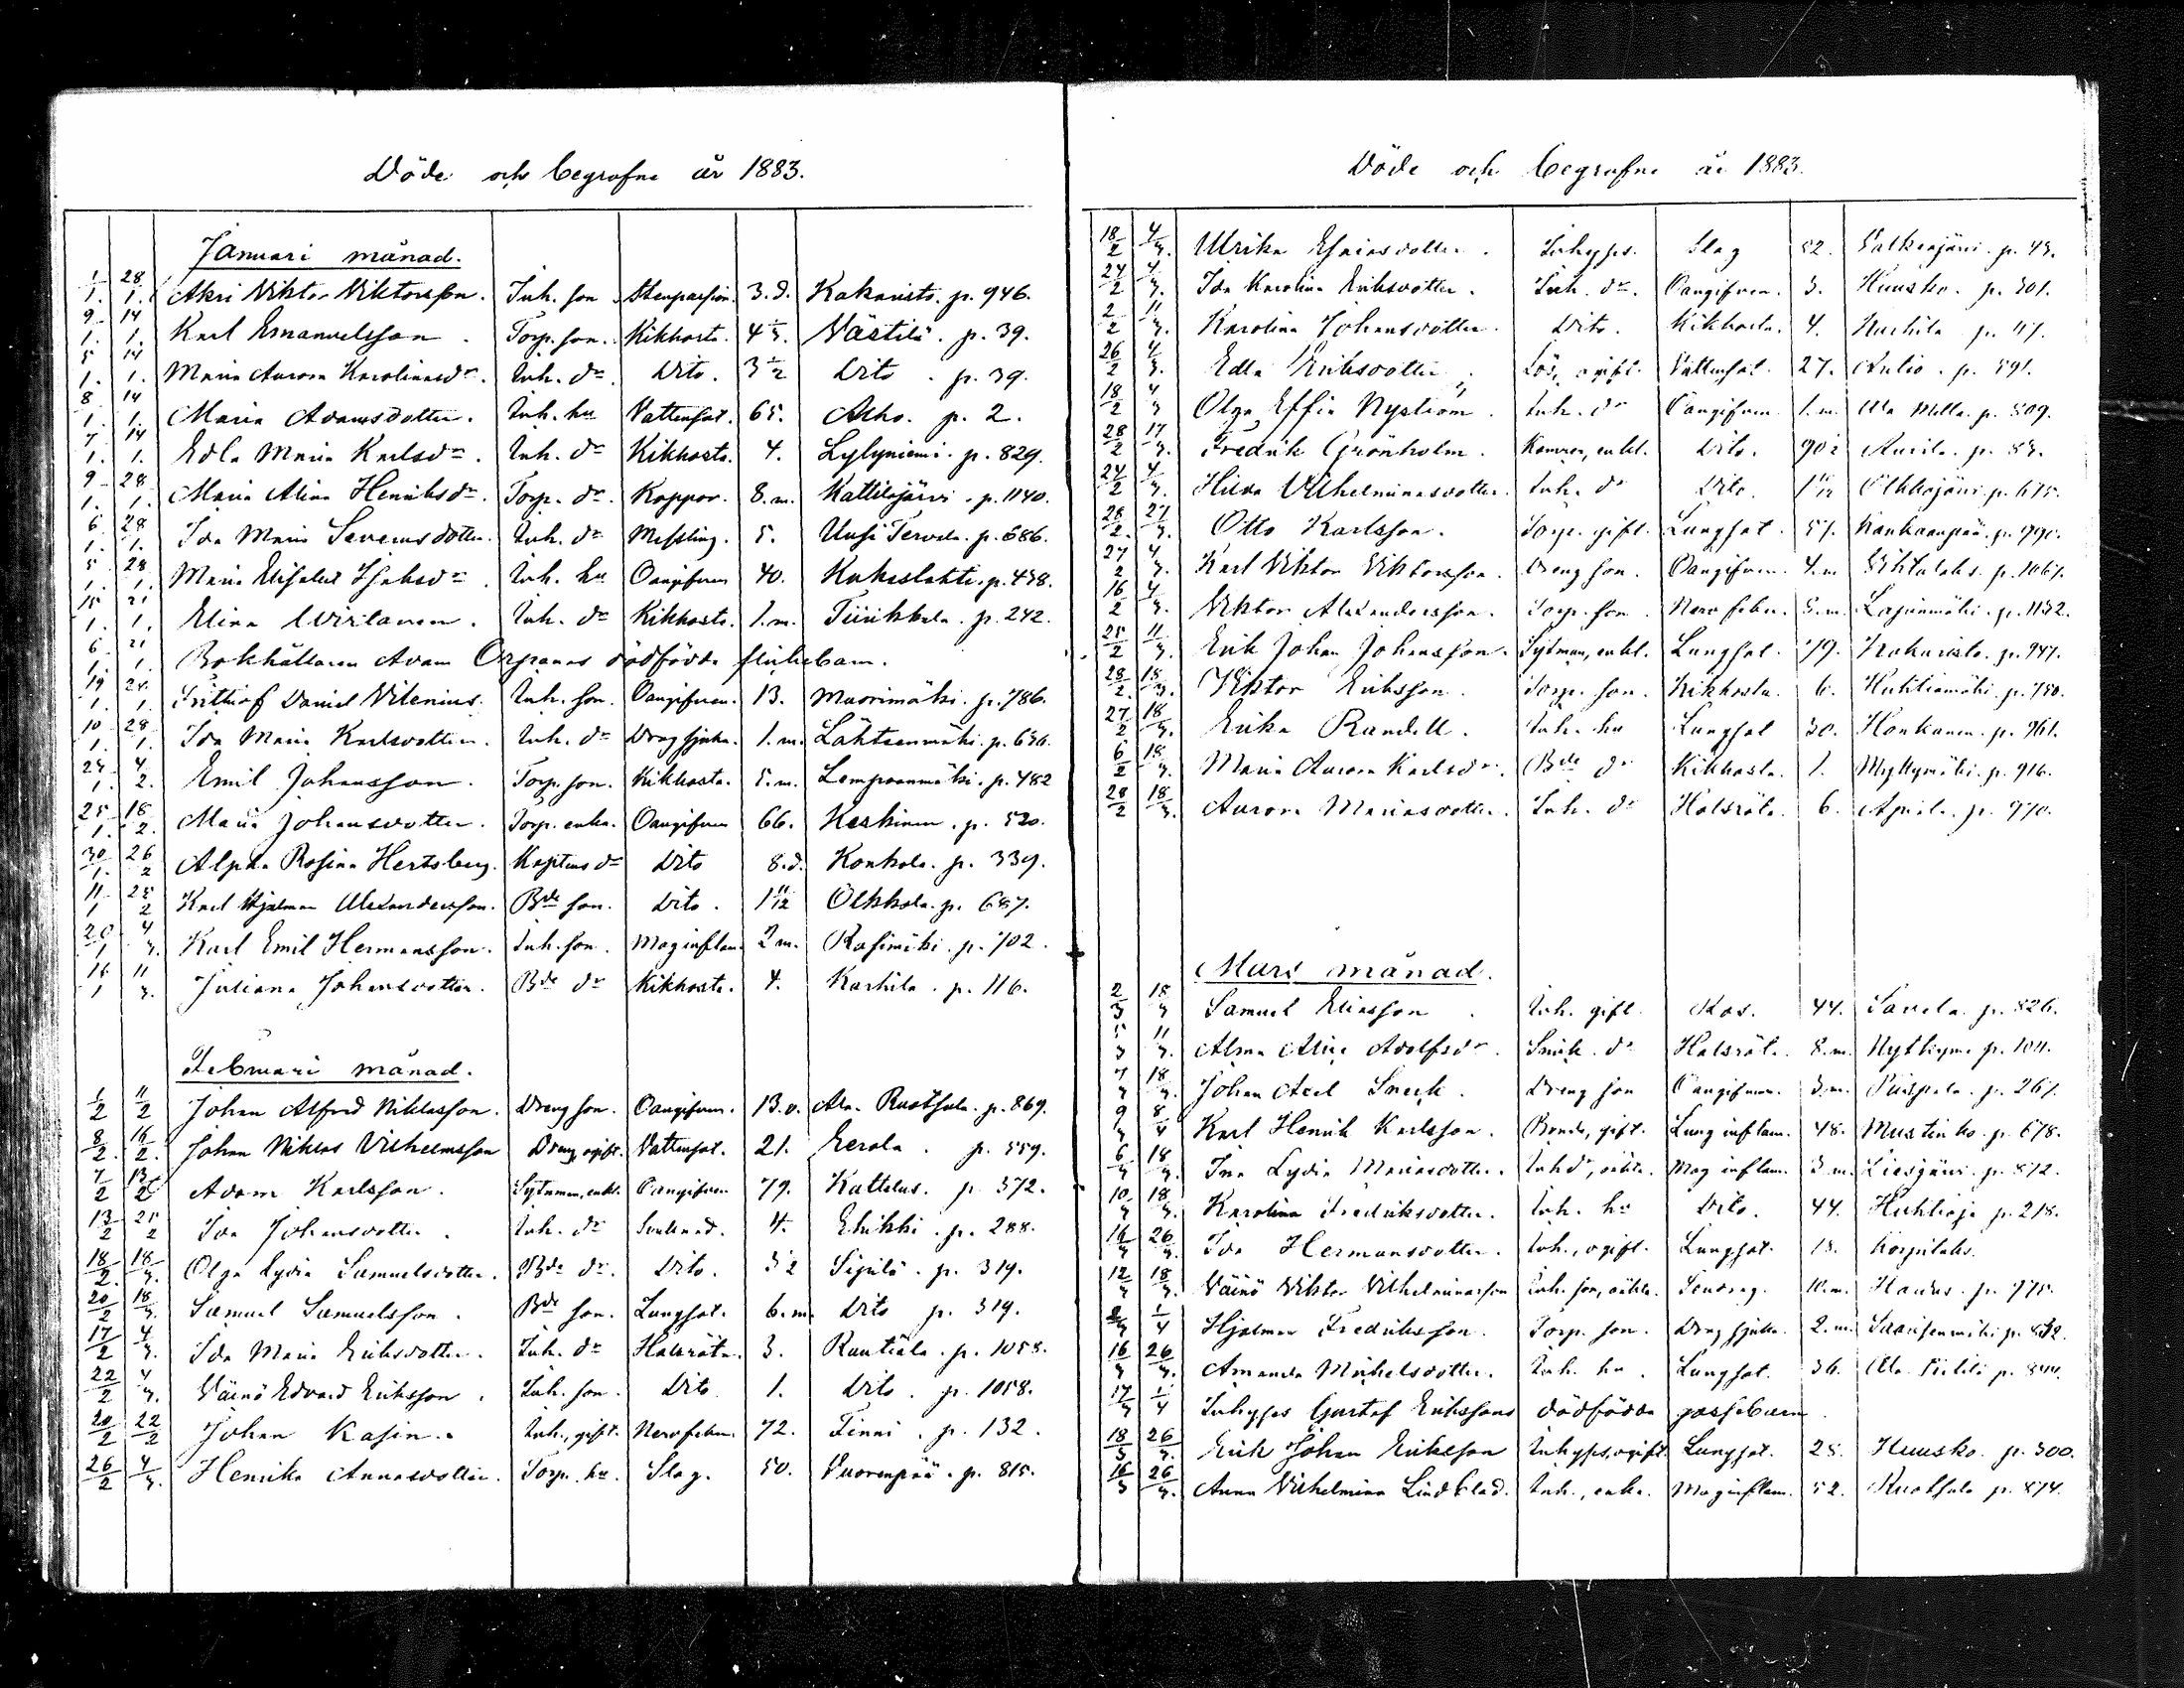 Döde och begrafne år 1883.
Januari månad.
1/1. 28/1. Akri Viktor Viktorsson. Inh. son 3. d. Kakaristo. p. 946.
9/1. 14/1. Karl Emanuelsson. Torp. son. Kikhosta. 4 1/3. Västilä. p. 39.
5/1. 14/1. Maria Aurora Karolinasdr. Inh. dr. Dito. 3 1/2 Dito. p. 39.
8/1. 14/1. Maria Adamsdotter. Inh. hu Vattensot. 65. Alho. p. 2.
7/1. 14/1. Edla Maria Karlsdr. Inh. dr Kikhosta. 4. Lylyniemi. p. 829.
9/1. 28/1. Maria Alina Henriksdr. Torp. dr. Koppor. 8. m. Kattilajärvi. p. 1140.
6/1. 28/1. Ida Maria Severusdotter. Inh. dr Messling. 5. Uusi Tervola. p. 686.
5/1. 28/1. Maria Elisabet Isaksdr. Inh. hu Oangifven 40. Kukaslahti. p. 438.
15/1. 21/1. Elina Wirtanen. Inh. dr Kikhosta. 1. m. Tiirikkala. p. 242.
6/1. 21/1. Bokhållaren Adam Orpanas dödfödda flickebarn.
19/1. 28/1. Frithiof Daniel Vilenius. Inh. son. Oangifven. 13. Muorimäki. p. 786.
10/1. 28/1. Ida Maria Karlsdotter. Inh. dr Dragsjuka. 1. m. Lähteenmäki. p. 636.
24/1. 4/2. Emil Johansson. Torp. son. Kikhosta. 5. m. Lemponmäki. p. 482
25/1. 18/2. Maria Johansdotter. Torp. enka. Oangifven 66. Keskinen. p. 520.
30/1. 26/2 Alpha Rosina Hertsberg. Kaptens dr Dito 8. d. Konkola. p. 339.
11/1 25/2 Karl Hjalmar Alexandersson. Bde son. Dito. 1 11/12 Olkkola. p. 687.
20/1 4/3. Karl Emil Hermansson. Inh. son. Maginflam. 2 m. Rasimäki. p. 702.
16/1 11/3. Juliana Johansdotter. Bde dr Kikhosta. 4. Karhila. p. 116.
Februari månad.
1/2 11/2 Johan Alfred Niklasson. Dreng son. Oangifven. 13. d. Ala-Ruotsala. p. 869.
8/2. 16/2. Johan Niklas Vilhelmsson Dreng ogift. Vattensot. 21. Eerola. p. 559.
7/2 Adam Karlsson. Sytnman, enkl. Oangifven 79. Kattelus. p. 372.
13/2 25/2 Ida Johansdotter. Inh. dr 4. Ehikki. p. 288.
18/2. 18/3. Olga Lydia Samuelsdotter. Bde dr. Dito. 3 1/2 Sipilä. p. 319.
20/2 18/3. Samuel Samuelsson. Bde son. Lungsot. 6. m. Dito p. 319.
17/2 4/3. Ida Maria Eriksdotter. Inh. dr Halsröta. 3. Rautiala. p. 1058.
22/2 4/3. Väinö Edvard Eriksson. Inh. son. Dito 1. Dito. p. 1058.
20/2 22/2 Johan Kasin. Inh., gift. Nervfeber. 72. Finni. p. 132.
26/2 4/3. Henrika Annasdotter. Torp. hu. Slag. 50. Vuorenpää. p. 815.
Döde och begrafne år 1883.
18/2 4/3. Ulrika Esaiasdotter. Inhyses. Slag 52. Valkeajärvi. p. 43.
24/2 4/3. Ida Karolina Eriksdotter. Inh. dr. Oangifven. 3. Kuusko. p. 301.
2/2 11/3. Karolina Johansdotter. Dito. Kikhosta. 4. Karhila p. 117.
26/2 4/3. Edla Eriksdotter. Lös, ogift. Vattensot. 27. Aulio. p. 591.
18/2 4/3 Olga Effia Nyström. Inh. dr Oangifven. 1. m. p. 509.
28/2 17/3. Fredrik Grönholm. enkl. Dito. 90 1/2 p. 83.
24/2 4/3. Hilda Vilhelminasdotter. Inh. dr Dito. Olkkajärvi. p. 675.
28/2. 27/3. Otto Karlsson. Torp. gift. Lungsot. 51. Kankaanpää. p. 990.
27/2 4/3. Karl Viktor Viktorsson. Dreng son. Oangifven. 4. m p. 1067.
16/2 4/3. Viktor Alexandersson. Torp. son. Nervfeber. 5. m. Lajunmäki. p. 1132.
25/2 11/3. Erik Johan Johansson. Sytnman, enkl. Lungsot. 79. Kakaristo. p. 947.
28/2. 18/3. Viktor Eriksson. Torp. son. Kikhosta. 6. Huhtiamäki. p. 750.
27/2 18/3. Erika Randell. Inh. hu Lungsot 30. Honkanen. p. 961.
6/2 18/3. Maria Aurora Karlsdr. Bde dr Kikhosta. 1. Myllymäki. p. 916.
28/2 18/3. Aurora Mariasdotter. Inh. dr Halsröta. 6. p. 970.
Mars månad.
2/3 18/3 Samuel Eliasson. Inh. gift. Ros. 44. Savela. p. 826.
5/3 11/3. Alma Alisa Adolfsdr. Smeds dr Halsröta. 8. m. p. 1011.
7/3 18/3. Johan Axel Sneck. Dreng son Oangifven. 3. m. Piispala. p. 267.
9/3 8/4 Karl Henrik Karlsson. Bonde, gift. Lunginflam. 48. Mustinko. p. 678.
6/3 18/3. Ina Lydia Mariasdotter. Inh dr, oäkta. Maginflam. 3 m. Liesjärvi. p. 872.
10/3 18/3. Karolina Fredriksdotter. Inh. hu Dito. 44. Huhtioja p. 218.
16/3 26/3. Ida Hermansdotter. Inh., ogift. Lungsot. 18. Korpilaks.
12/3 18/3. Väinö Viktor Vilhelminasson Inh. son, oäkta. 10. m. p. 975.
1/4 Hjalmar Fredriksson. Torp. son. Dragsjuka. 2. m.
16/3 26/3. Amanda Mickelsdotter. Inh. hu. Lungsot. 36. p. 844.
17/3 1/4 Inhyses Gustaf Erikssons dödfödda gossebarn.
18/3 26/3. Erik Johan Eriksson Inhyses, ogift Lungsot. 25. Kuusko. p. 300.
16/3 26/3. Anna Vilhelmina Lindblad. Inh., enka. Maginflam. 52. Ruotsala p. 874.